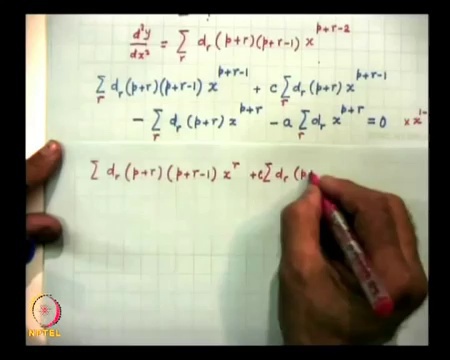 d²y/dx² = Σ_r d_r (p+r)(p+r-1) x^{p+r-2}
Σ_r d_r (p+r)(p+r-1) x^{p+r-1} + c Σ_r d_r (p+r) x^{p+r-1}
- Σ_r d_r (p+r) x^{p+r} - a Σ_r d_r x^{p+r} = 0 × x^{1-
Σ d_r (p+r) (p+r-1) x^r + c Σ d_r (p+
NPTEL